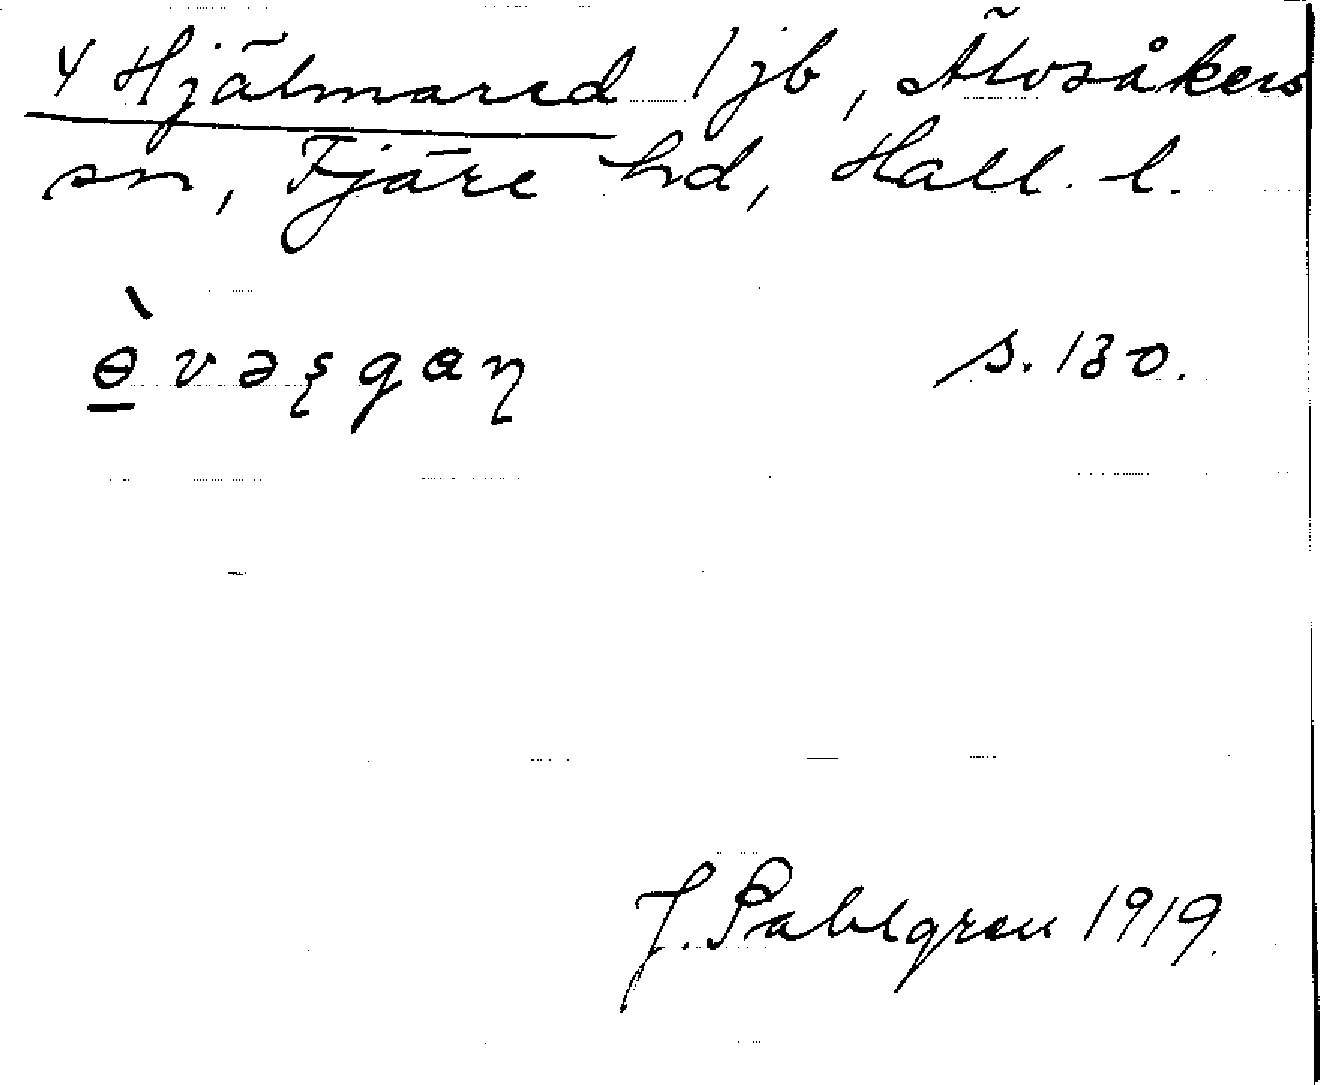 4 Hjälmared 1 jb, Älvsåkers
sn, Fjäre hd, Hall. l.
ɵ̱̀vəʂgaɳ s. 130.
J. Sahlgren 1919.